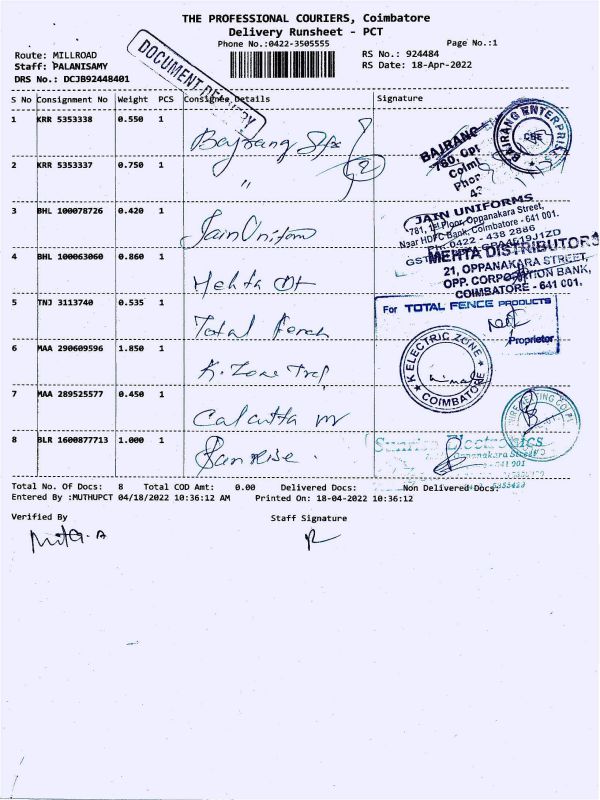 THE PROFESSIONAL COURIERS, Coimbatore
Delivery Runsheet - PCT
Phone No.:0422-3505555
Page No.:1
Route: MILLROAD
RS No.: 924484
Staff: PALANISAMY
RS Date: 18-Apr-2022
DRS No.: DCJB92448401
DOCUMENT DELIVERY
S No Consignment No Weight PCS Consignee Details Signature
1 KRR 5353338 0.550 1 Bajrang
BAJRANG
BAJRANG ENTERPRISES
CBE
2 KRR 5353337 0.750 1 "
3 BHL 100078726 0.420 1 Jain Uniform
JAIN UNIFORMS
781, 1st Floor, Oppanakara Street,
Near HDFC Bank, Coimbatore - 641 001.
Ph: 0422 - 438 2886
4 BHL 100063060 0.860 1 Mehta Dt
MEHTA DISTRIBUTORS
21, OPPANAKARA STREET,
OPP. CORPORATION BANK,
COIMBATORE - 641 001.
5 TNJ 3113740 0.535 1 Total Fence
For TOTAL FENCE PRODUCTS
Proprietor
6 MAA 290609596 1.850 1 K. Zone
K ELECTRIC ZONE
COIMBATORE
7 MAA 289525577 0.450 1 Calcutta
8 BLR 1600877713 1.000 1 Sunrise.
Sunrise Electronics
Oppanakara Street
Total No. Of Docs: 8 Total COD Amt: 0.00 Delivered Docs: Non Delivered Docs:
Entered By :MUTHUPCT 04/18/2022 10:36:12 AM Printed On: 18-04-2022 10:36:12
Verified By Staff Signature